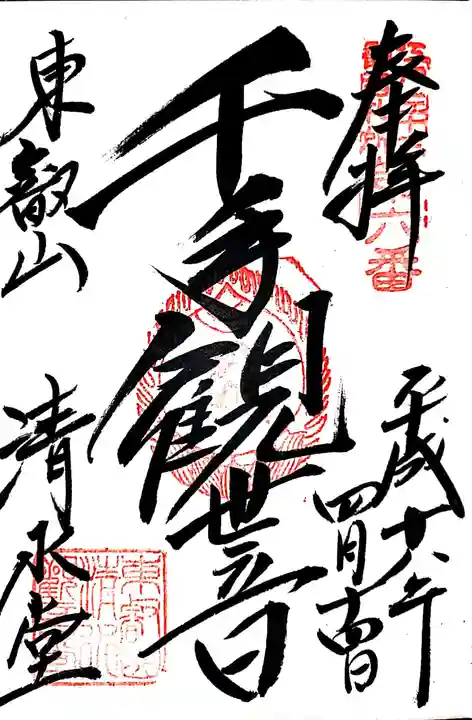 奉拝
平成十六年
四月
千手観世音
東叡山
清水堂
六番